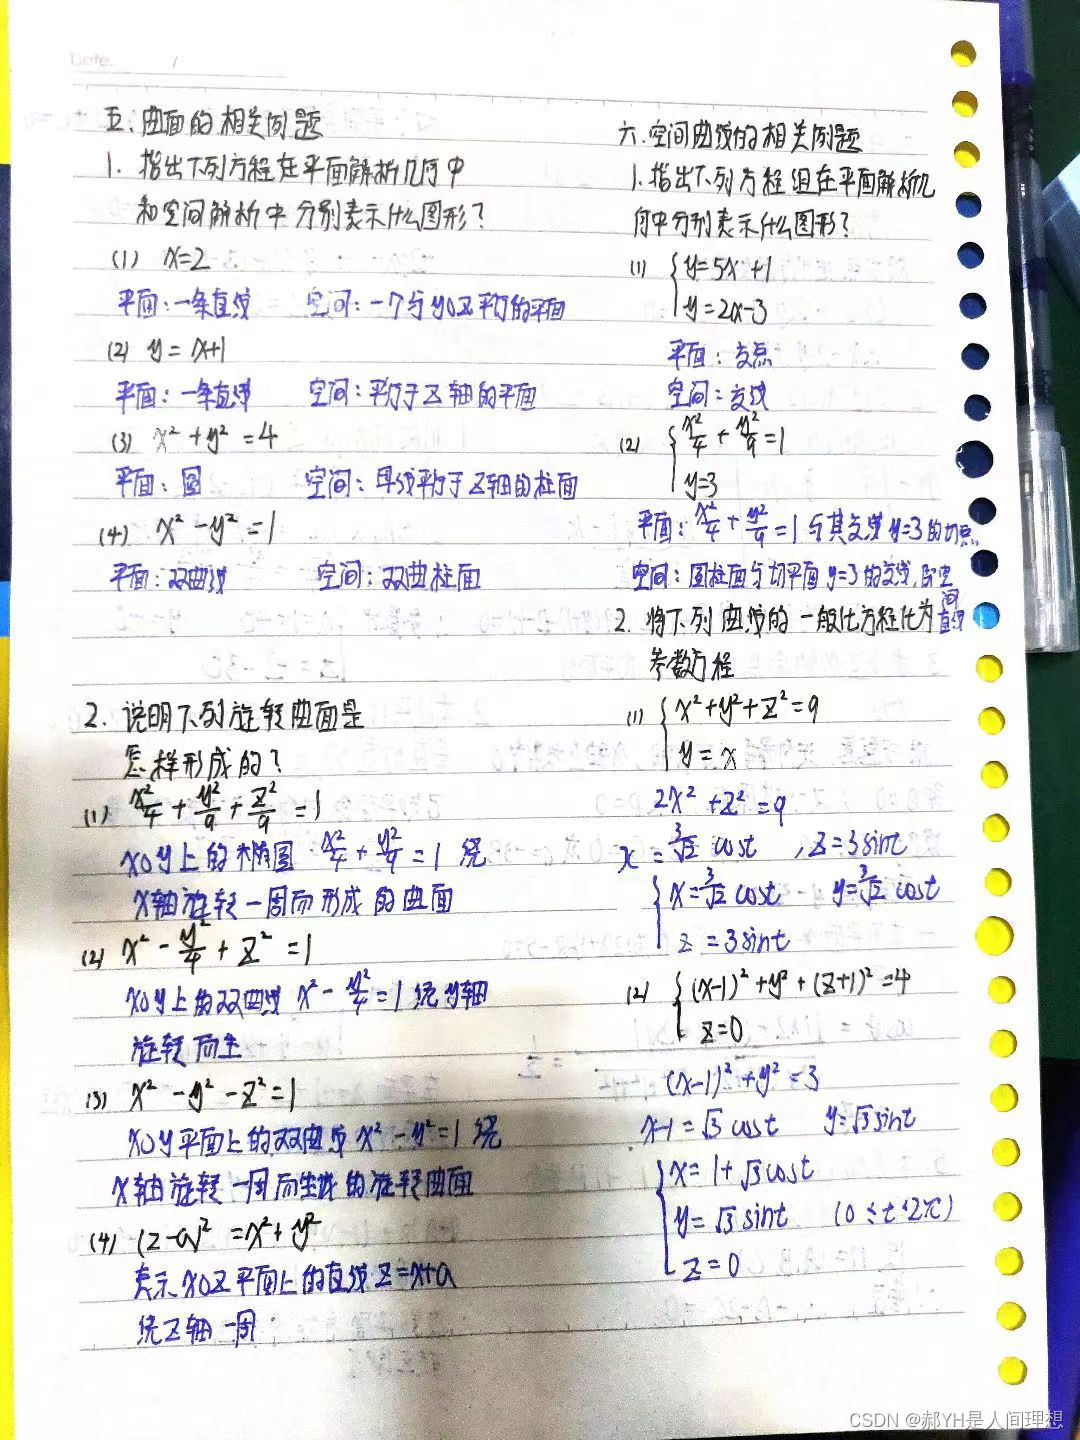 Date.
/
五. 曲面的相关例题
1. 指出下列方程在平面解析几何中
和空间解析中分别表示什么图形?
(1) x=2
平面:一条直线 空间:一个与yoz平行的平面
(2) y=x+1
平面:一条直线 空间:平行于Z轴的平面
(3) x²+y²=4
平面:圆 空间:母线平行于Z轴的柱面
(4) x²-y²=1
平面:双曲线 空间:双曲柱面
2. 说明下列旋转曲面是
怎样形成的?
(1) x²/4+y²/9+z²/9=1
xoy上的椭圆 x²/4+y²/9=1 绕
x轴旋转一周而形成的曲面
(2) x²-y²/4+z²=1
xoy上的双曲线 x²-y²/4=1绕y轴
旋转而生
(3) x²-y²-z²=1
xoy平面上的双曲线 x²-y²=1绕
x轴旋转一周而生成的旋转曲面
(4) (z-a)²=x²+y²
表示xoz平面上的直线z=x+a
绕Z轴一周
六. 空间曲线的相关例题
1. 指出下列方程组在平面解析几
何中分别表示什么图形?
(1) { y=5x+1
y=2x-3
平面:交点
空间:交线
(2) { x²/4+y²/9=1
y=3
平面:x²/4+y²/9=1与其交线y=3的切点.
空间:圆柱面与切平面y=3的交线,即空
间
直线
2. 将下列曲线的一般化方程化为
参数方程
(1) { x²+y²+z²=9
y=x
2x²+z²=9
x=3/√2 cost , z=3sint
{ x=3/√2 cost y=3/√2 cost
z=3sint
(2) { (x-1)²+y²+(z+1)²=4
z=0
(x-1)²+y²=3
x-1=√3 cost y=√3 sint
{ x=1+√3cost
y=√3 sint (0≤t≤2π)
z=0
CSDN @郝YH是人间理想